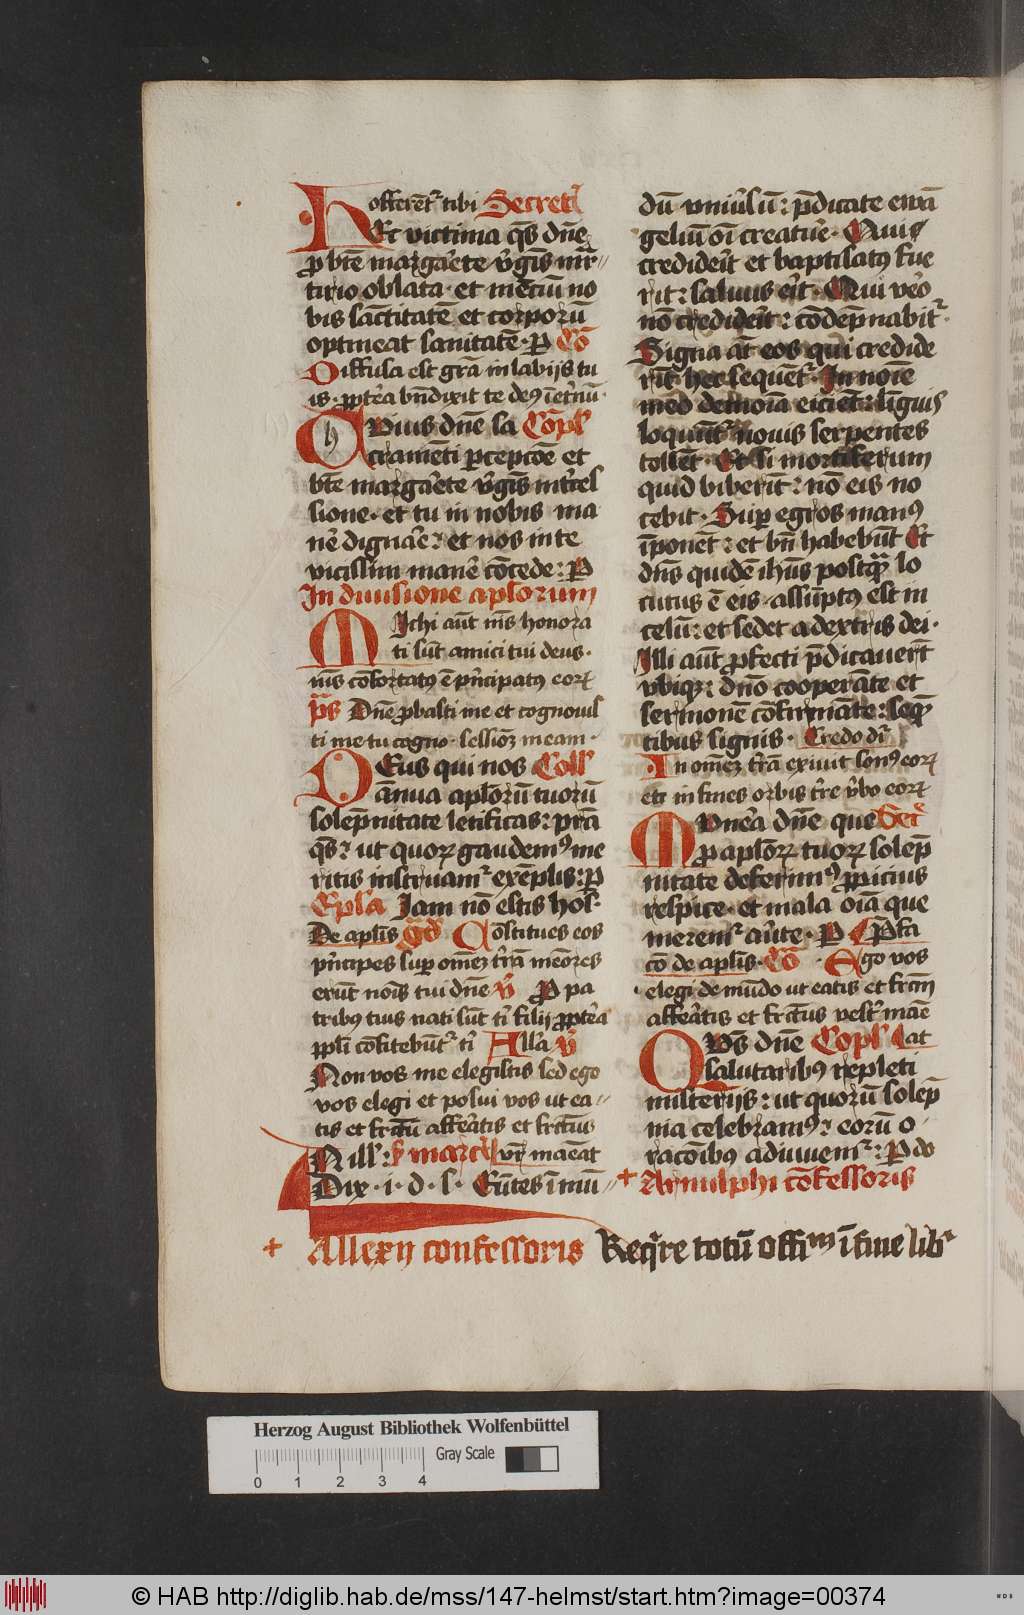 offerent᷑ tibi Secret᷑
Hec victima q̄s dn̄e
ꝓ bt̄e margar̄ete v̄gīs mr̄⸗
tirio oblata · et mēciū no
bis sāctitatē et corporū
optineat sanitatē · P Cō
Diffusa est gr̄a in labijs tu
is · ꝓpt̄ea bn̄dixit te deꝰ ī et̄nū ·
Huius dn̄e sa Cōpl᷑
cramēti ꝑcepcōe et
bt̄e margar̄ete v̄gīs īnt̄ces
sione · et tu in nobis ma
nē dignar̄e : et nos in te
vicissim manē cōcede : P
In diuisione apl̄orum
Michi aūt nīs honora
ti sūt amici tui deus ·
nīs cōfortatꝰ ē pn̄cipatꝰ eoꝝ
p̄s Dn̄e ꝓbasti me et cognouis
ti me tu cogno · sessioꝫ meam ·
Deus qui nos Coll᷑
ānua apl̄orū tuorū
solēpnitate letificas : pr̄a
q̄s : ut quoꝝ gaudemꝰ me
ritis instruam᷑ exēplis : P
Epl̄a Iam nō estis hos·
De apl̄is Gd̄ Cōstitues eos
pn̄cipes suꝑ omēꝫ t̄rā mēores
erūt noīs tui dn̄e v̄ Pro pa
tribꝰ tuis nati sūt t̄ filij ꝓpt̄ea
ppl̄i cōfitebūt᷑ t̄ All᷑a v̄
Non vos me elegistis sed ego
vos elegi et posui vos ut ea⸗
tis et fructū afferātis et fructus
Nill᷑ : s̄ marcū vr̄ maēat
Dix · i · d · s · Eūtes ī mū⸗
dū vniūsū : p̄dicate ewā
geliū oī creatur̄e · Qui
crediderīt et baptisatꝰ fue
rit : saluus er̄it · Qui vēo
nō crediderīt : cōdēpnabit᷑
Signa āt eos qui credide
rīt hec sequēt᷑ In noīe
meo demoīa eiciēt : līguis
loquūt᷑ nouis serpentes
tollēt · Et si mortiferum
quid biberīt : nō eis no
cebit · Suꝑ egros manꝰ
īponēt : et bn̄ habebūt Et
dn̄s quidē ihūs postꝙ lo
cutus ē eis · assūptꝰ est in
celū : et sedet a dextris dei ·
Illi aūt ꝓfecti p̄dicauerūt
vbiqꝫ : dn̄o cooperāte et
sermonē cōfirmāte : seq̄
tibus signis · Credo dr̄
In omēꝫ t̄rā exiuit sonꝰ eoꝝ
etī in fines orbis t̄re v̄bo eoꝝ
Munera dn̄e que Secr᷑
ꝓ apl̄oꝝ tuoꝝ solēp
nitate deferimꝰ ꝓpicius
respice · et mala oīa que
merem᷑ aūte · P Pr̄fa
cō de apl̄is · Cō Ego vos
elegi de mūdo ut eatis et frc̄m
afferātis et fructus vest᷑ maē
Qvs̄ dn̄e Copl᷑ Lat
salutaribꝰ repleti
misterijs : ut quorū solēp
nia celebramꝰ : eorū o
racōibꝰ adiuuem᷑ : P do
+ Arnulphi cōfessoris
+ Allexij confessoris Req̄re totū offīm ī fine lib᷑
Herzog August Bibliothek Wolfenbüttel
Gray Scale
0 1 2 3 4
© HAB http://diglib.hab.de/mss/147-helmst/start.htm?image=00374